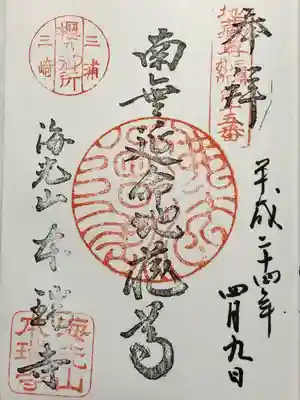 奉拝
平成二十四年
四月九日
南無延命地蔵尊
三浦
三崎
海光山本瑞寺
海光山
本瑞寺